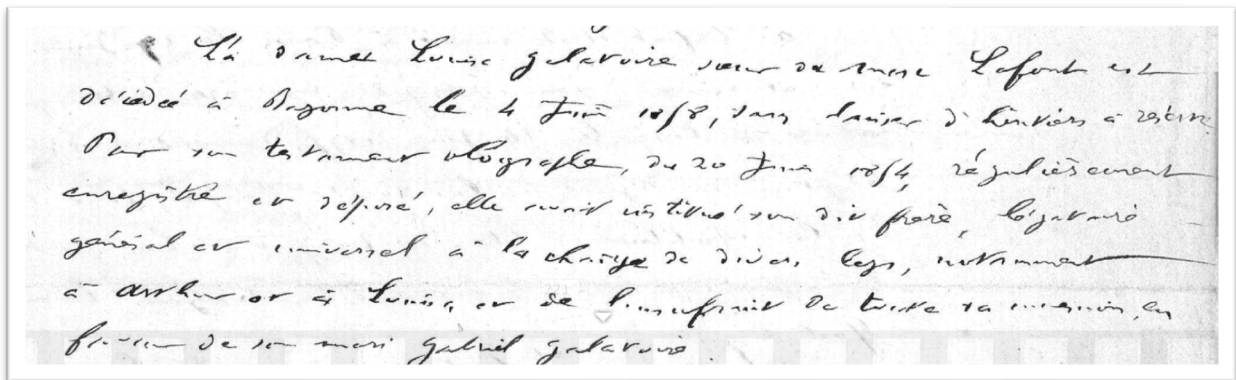 La dame Louise Galavoire soeur de Lafont est
décédée à Bayonne le 4 Juin 1858, sans laisser d'héritiers à réserve.
Par son testament olographe, du 20 Juin 1854, régulièrement
enregistré et déposé, elle avait institué son dit frère, légataire
général et universel à la charge de divers legs, notamment
à et à Louise, et de l'usufruit de toute sa succession, en
faveur de son mari Gabriel Galavoire.